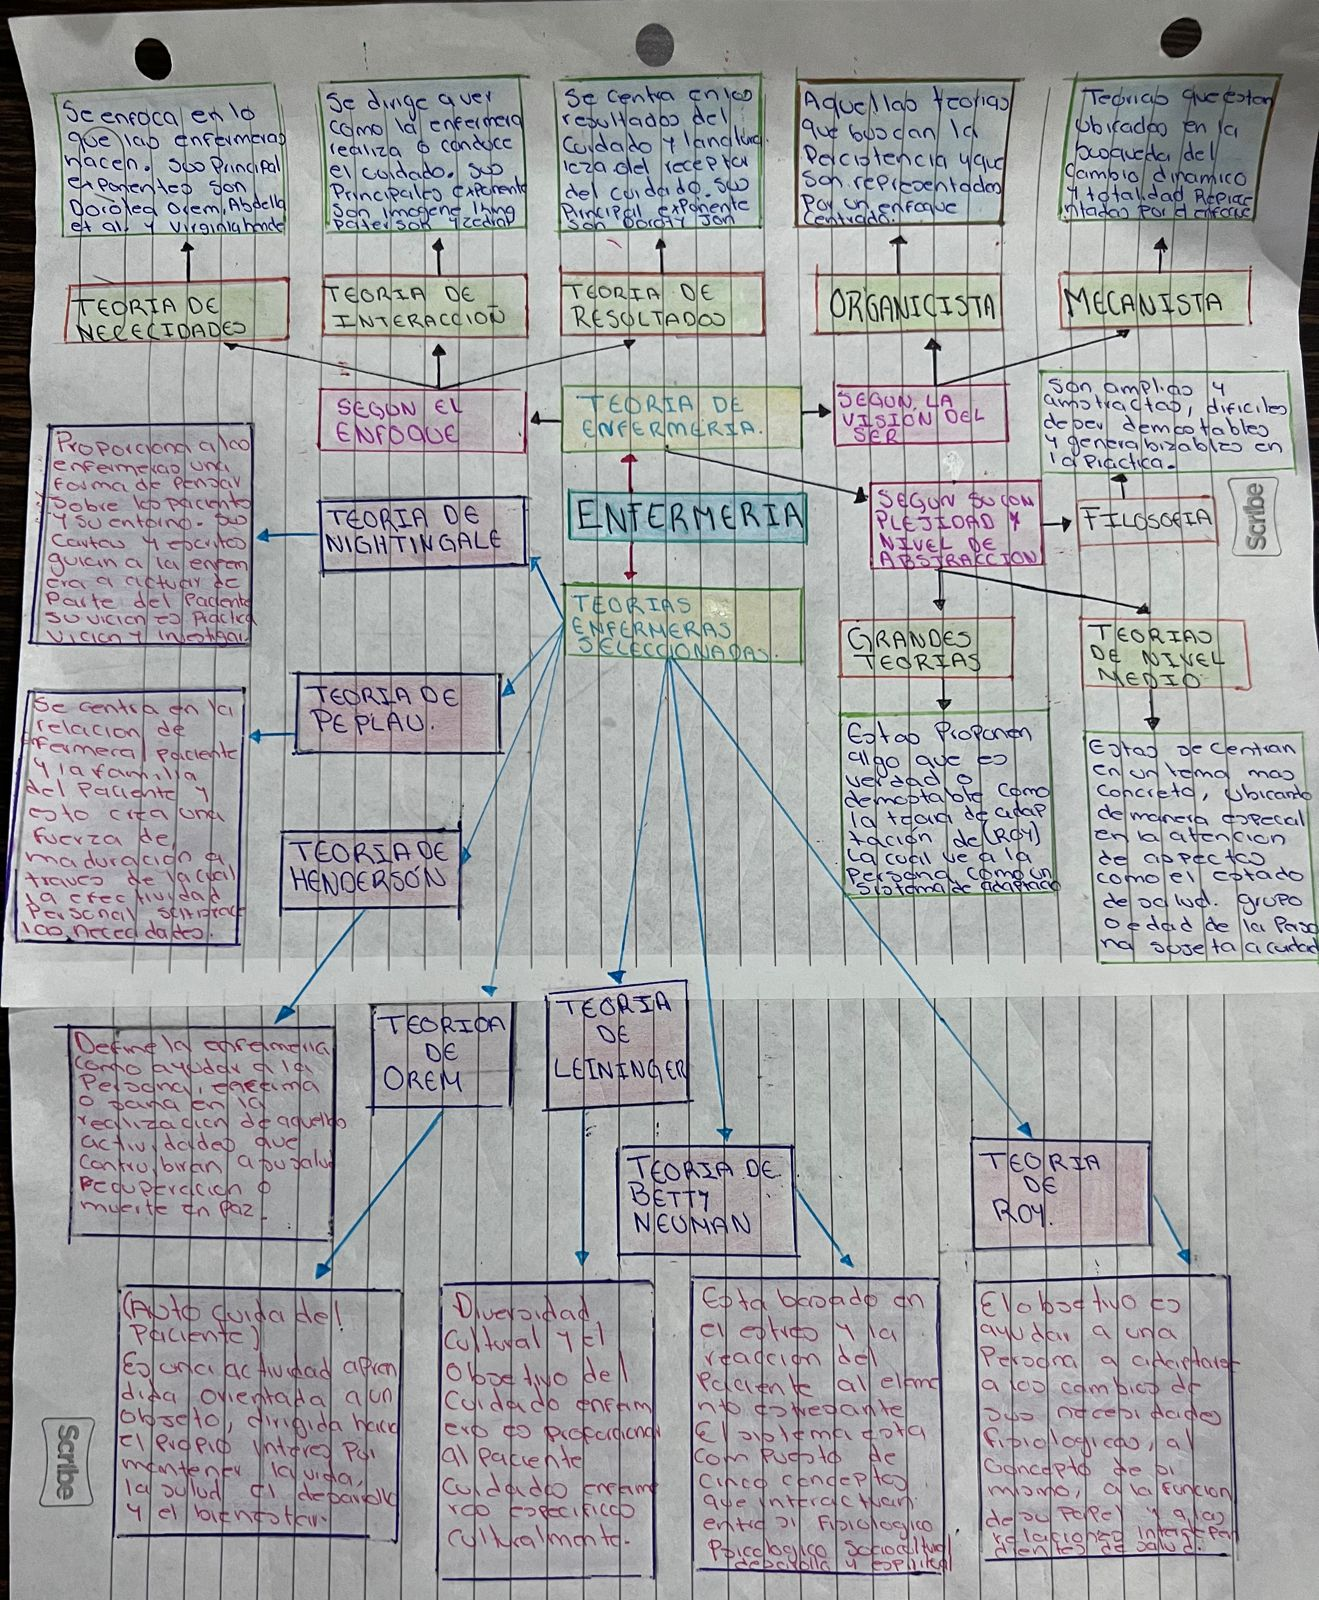 Se enfoca en lo
que las enfermeras
hacen. sus Principal
exponentes son
Dorotea Orem, Abdella
et al. y Virginia hende
Se dirige a ver
como la enfermera
realiza o conduce
el cuidado. sus
Principales exponente
son imogene king
Paterson y zedad
Se centra en los
resultados del
cuidado y la natura
leza del recepta
del cuidado. sus
Principal exponente
son dorothy Jon
Aquellas teorias
que buscan la
Percistencia y que
son representados
Por un enfoque
centrado.
Teorias que estan
ubicados en la
busqueda del
cambio dinamico
y totalidad Represe
ntados Por el enfoque
TEORIA DE
NECECIDADES
TEORIA DE
INTERACCION
TEORIA DE
RESULTADOS
ORGANICISTA
MECANISTA
SEGUN EL
ENFOQUE
TEORIA DE
ENFERMERIA.
SEGUN LA
VISION DEL
SER
son amplias y
amstractas, dificiles
de ser demostables
y generabizables en
la Practica.
Proporciona a los
enfermeras una
forma de Pensar
sobre los paciento
y su entorno. sus
cartas y escritos
guian a la enfem
era a actuar de
Parte del Paciente
su vicion es Practica
vicion y investigar.
TEORIA DE
NIGHTINGALE
ENFERMERIA
SEGUN SU COM
PLEJIDAD Y
NIVEL DE
ABSTRACCION
FILOSOFIA
Scribe
TEORIAS
ENFERMERAS
SELECCIONADAS.
GRANDES
TEORIAS
TEORIAS
DE NIVEL
MEDIO.
Se centra en la
relacion de
enfermera, paciente
y la familia
del Paciente y
esto crea una
fuerza de
maduracion a
traves de la cual
la efectividad
Personal
las necesidades.
TEORIA DE
PEPLAU.
Estas Proponen
algo que es
verdad o
demostable como
la teoria de adap
tación de (ROY)
La cual ve a la
Persona como un
Sistema de adaptacio
Estas se centran
en un tema mas
concreto, ubicando
de manera especial
en la atencion
de aspectos
como el estado
de salud. grupo
o edad de la Perso
na sujeta a cuidad
TEORIA DE
HENDERSÓN
Define la enfermeria
como ayudar a la
Persona, enferma
o sana en la
realizacion de aquellas
actividades que
contribuiran a su salud
recuperacion o
muerte en Paz.
TEORICA
DE
OREM
TEORIA
DE
LEININGER
TEORIA DE
BETTY
NEUMAN
TEORIA
DE
ROY.
(Auto cuida del
Paciente)
Es una actividad apren
dida orientada a un
Objeto, dirigida hacia
el Propio interes Por
mantener la vida,
la salud el desarrollo
y el bienestar.
Diversidad
Cultural y el
Objetivo del
Cuidado enferm
ero es proporcionar
al Paciente
Cuidados enferm
eros especificos
culturalmente.
Esta basado en
el estres y la
reaccion del
Paciente al eleme
nto estresante
El sistema esta
compuesto de
cinco conceptos
que interactuan.
entre si fisiologico
Psicologico sociocultural
desarrolla y espiritual
El objetivo es
ayudar a una
Persona a adaptarse
a los cambios de
sus necesidades
fisiologicas, al
Concepto de si
mismo, a la funcion
de su Papel y a las
relaciones interdepen
dientes de salud.
Scribe